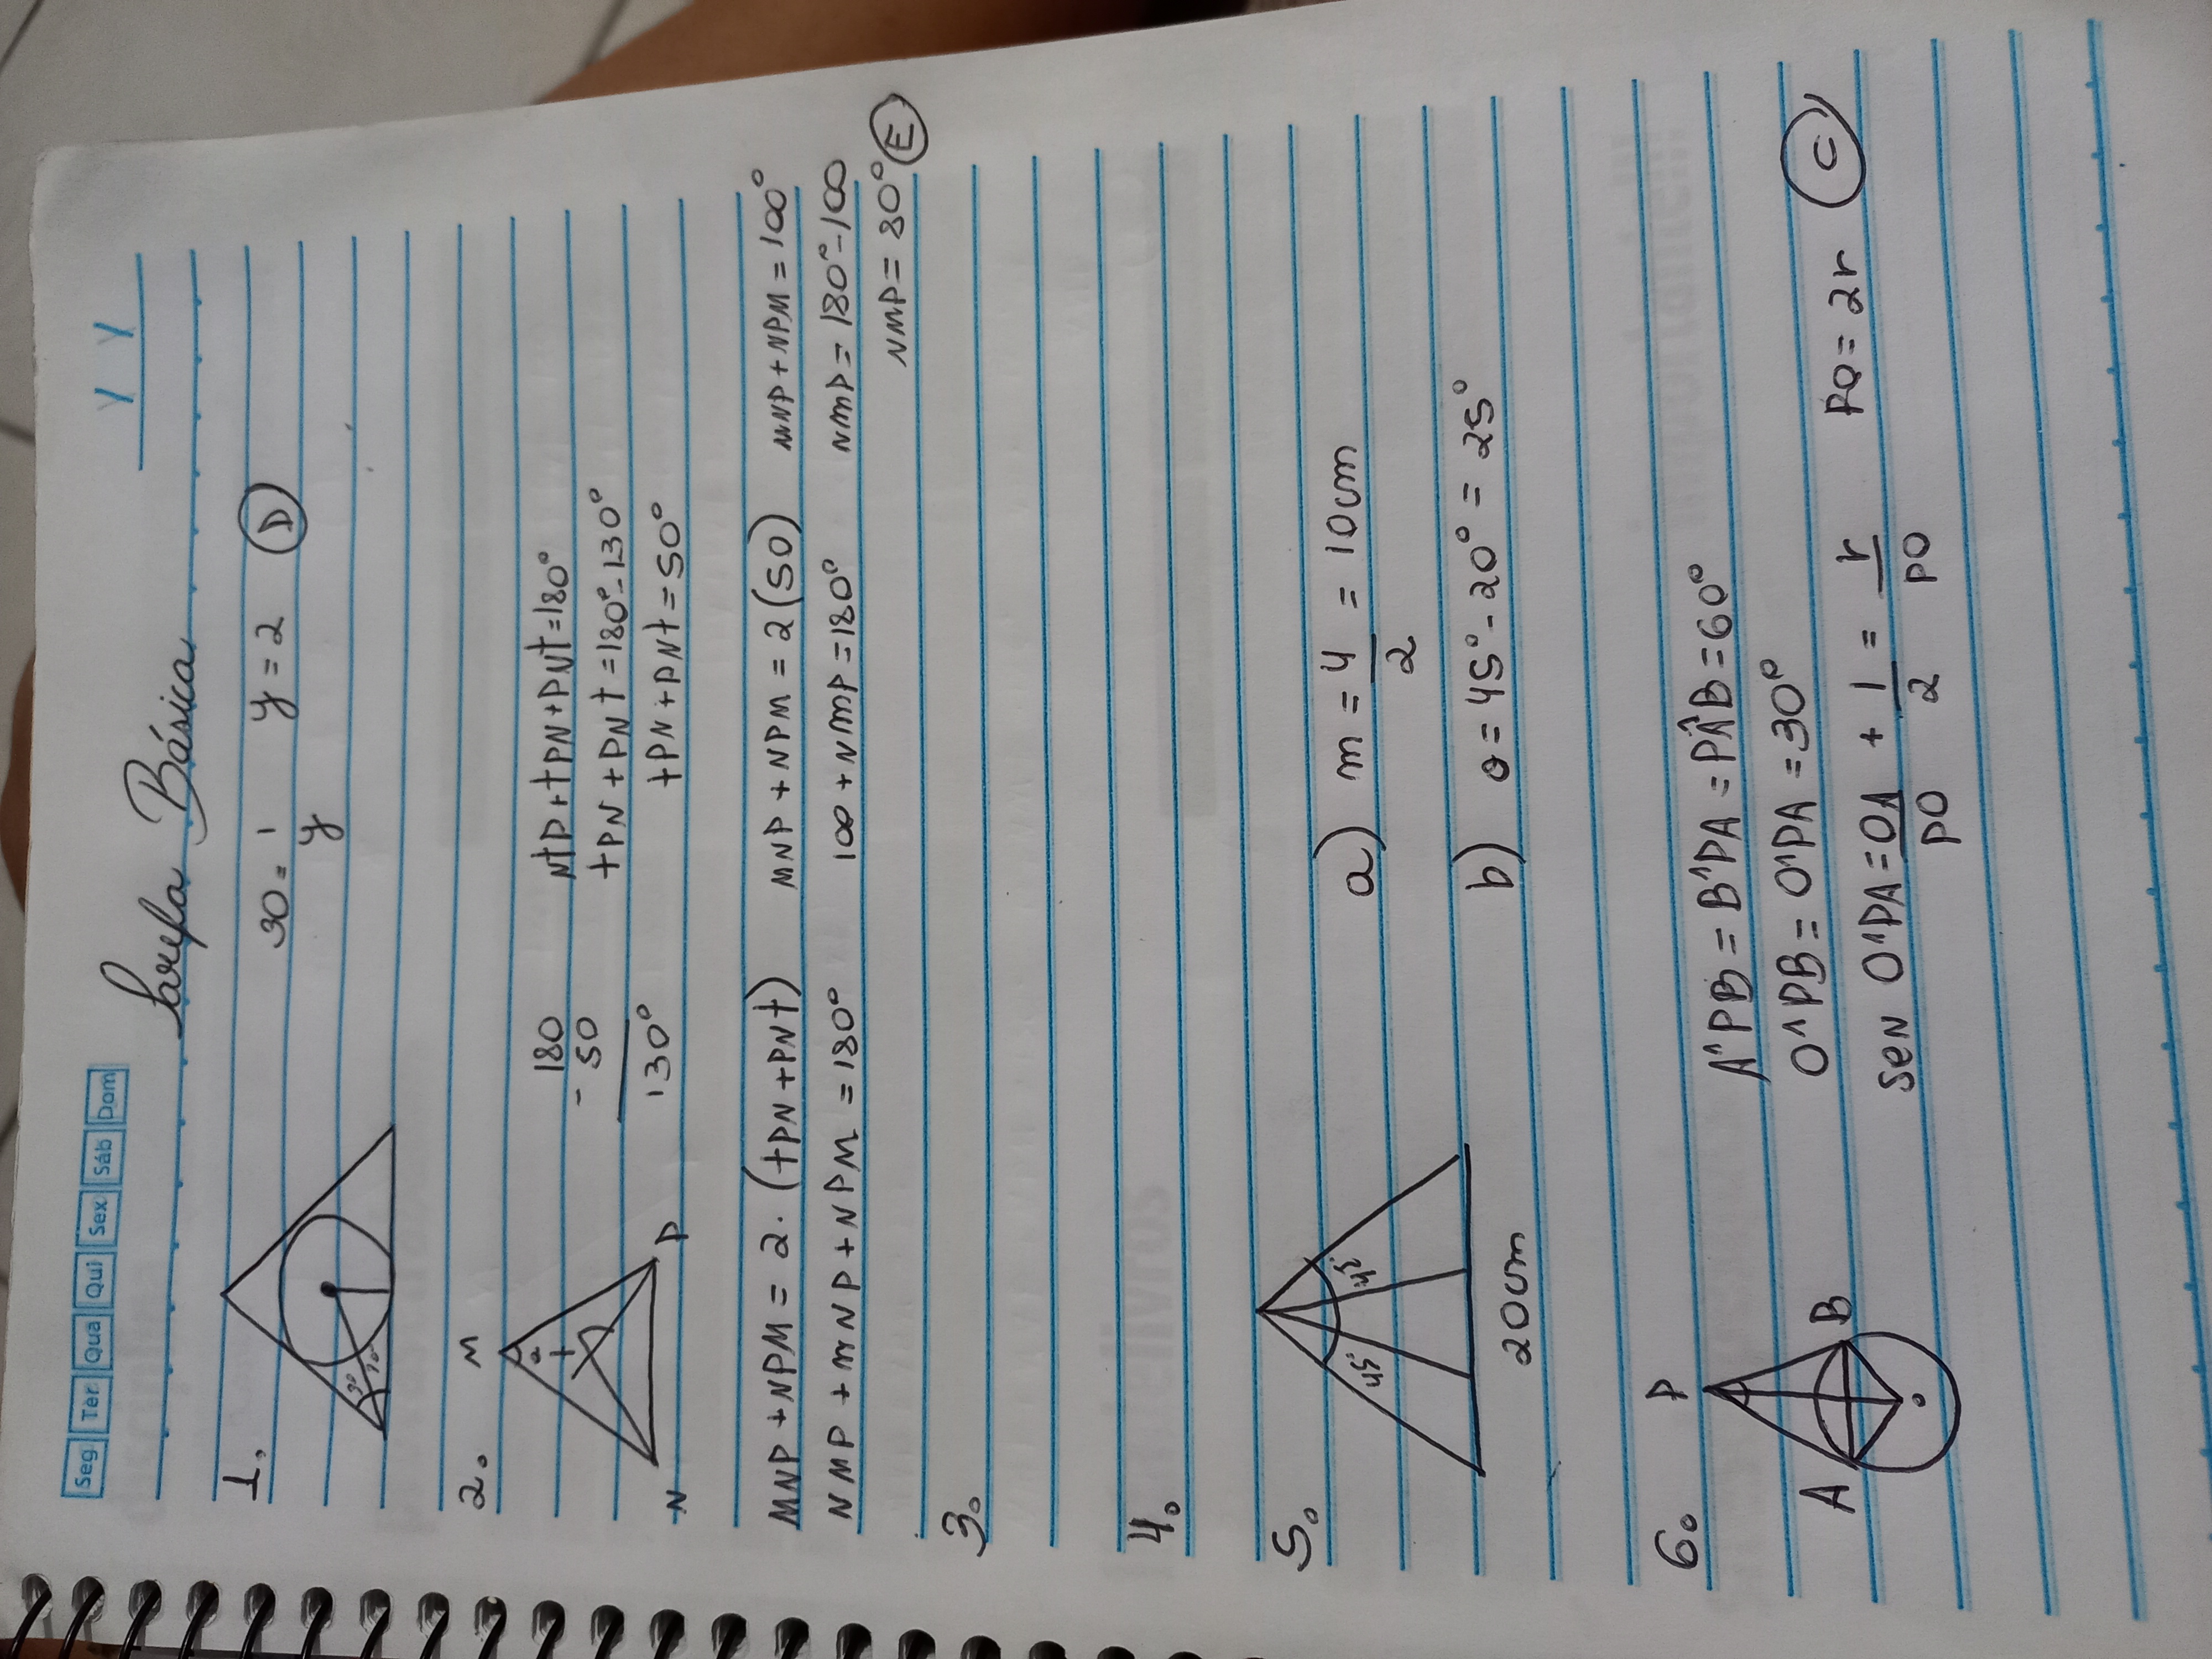 Seg Ter Qua Qui Sex Sáb Dom
Tarefa Básica
1.
30 = 1/y y = 2 D
30
2. M
180
- 50
130°
N P
NtP + tPN + PNt = 180°
tPN + PNt = 180° - 130°
tPN + PNt = 50°
MNP + NPM = 2. (tPN + PNt) MNP + NPM = 2(50) MNP + NPM = 100°
NMP + mNP + NPM = 180° 100 + NMP = 180° NMP = 180° - 100
NMP = 80° E
3.
4.
5.
45° 45°
20cm
a) m = 4/2 = 10cm
b) θ = 45° - 20° = 25°
6. P
A B
o
A^PB = B^PA = PÂB = 60°
O^PB = O^PA = 30°
sen O^PA = OA/PO + 1/2 = r/PO PO = 2r C